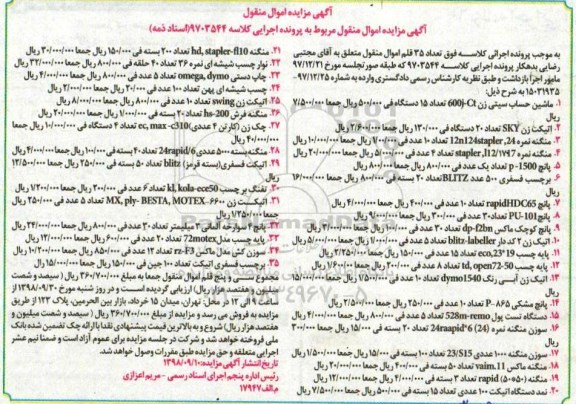 آگهی مزایده اموال منقول
آگهی مزایده اموال منقول مربوط به پرونده اجرایی کلاسه ۹۷۰۳۵۴۴(اسناد ذمه)
به موجب پرونده اجرائی کلاسه فوق تعداد ۳۵ قلم اموال منقول متعلق به آقای مجتبی
رضایی بدهکار پرونده اجرایی کلاسه ۹۷۰۳۵۴۴ که طبق صورتجلسه مورخ ۹۷/۱۲/۲۱
مامور اجرا بازداشت و طبق نظریه کارشناس رسمی دادگستری وارده به شماره ۹۷/۱۲/۲۵-
۱۵۰۳۱۹۳۵ به شرح ذیل:
۱- ماشین حساب سیتی زن 600j-Ct تعداد ۱۵ دستگاه فی ۵۰۰/۰۰۰ ریال جمعا ۷/۵۰۰/۰۰۰
ریال
۲- اتیکت زن SKY تعداد ۲۰ دستگاه فی ۱۳۰/۰۰۰ ریال جمعا ۲/۶۰۰/۰۰۰ ریال
۳- منگنه نمره 24, 12n124stapler تعداد ۱۰ عدد فی ۱/۰۰۰/۰۰۰ ریال جمعا ۱۰/۰۰۰/۰۰۰ ریال
۴- منگنه نمره stapler, l12/1747 تعداد ۴ عدد فی ۵/۰۰۰/۰۰۰ ریال جمعا ۲۰/۰۰۰/۰۰۰ ریال
۵- پانچ p-1500 تعداد یک عدد فی ۸۰۰/۰۰۰ ریال جمعا ۸۰۰/۰۰۰ ریال
۶- برچسب فسفری ۵۰۰ عدد BLITZ تعداد ۲۰ بسته فی ۸۰۰/۰۰۰ ریال جمعا ۱۶/۰۰۰/۰۰۰
ریال
۷- پانچ rapidHDC65 تعداد ۱۰ عدد فی ۴۰۰/۰۰۰ ریال جمعا ۴/۰۰۰/۰۰۰ ریال
۸- پانچ PU-101 تعداد ۳۰ عدد فی ۳۰۰/۰۰۰ ریال جمعا ۹/۰۰۰/۰۰۰ ریال
۹- پانچ کوچک ماکس dp-f2bn تعداد ۳۰ عدد فی ۱۰۰/۰۰۰ ریال جمعا ۳/۰۰۰/۰۰۰ ریال
۱۰- اتیکت زن ۲ کد دار blitz-labeller تعداد ۵ عدد فی ۱/۰۰۰/۰۰۰ ریال جمعا ۵/۰۰۰/۰۰۰ ریال
۱۱- پایه چسب eco,23*19 تعداد ۱۵ عدد فی ۱۵۰/۰۰۰ ریال جمعا ۲/۲۵۰/۰۰۰ ریال
۱۲- پایه چسب td, open72-50 تعداد ۸ عدد فی ۲۰۰/۰۰۰ ریال جمعا ۱/۶۰۰/۰۰۰ ریال
۱۳- اتیکت زن آبی رنگ dymo1540 تعداد ۱۰ عدد فی ۱/۵۰۰/۰۰۰ ریال جمعا ۱۵/۰۰۰/۰۰۰
ریال
۱۴- پانچ مشکی P-۸۶۵ تعداد ۱۰ عدد فی ۲۵۰/۰۰۰ ریال جمعا ۲/۵۰۰/۰۰۰ ریال
۱۵- دستگاه تست پول 528m-remo تعداد ۵ عدد فی ۸۰۰/۰۰۰ ریال جمعا ۴/۰۰۰/۰۰۰ ریال
۱۶- سوزن منگنه نمره (24) 24raapid*6 تعداد ۲۰ بسته فی ۱۵/۰۰۰ ریال جمعا ۳۰۰/۰۰۰
ریال
۱۷- سوزن منگنه ۱۰۰۰ عددی 23/S15 تعداد ۱۰۰ بسته فی ۱۵/۰۰۰ ریال جمعا ۱/۵۰۰/۰۰۰ ریال
۱۸- منگنه ماکس vaim.11 تعداد ۵۰ عدد فی ۴۰۰/۰۰۰ ریال جمعا ۲۰/۰۰۰/۰۰۰ ریال
۱۹- منگنه (۵۰*۵۰) rapid تعداد ۳ بسته فی ۴/۰۰۰/۰۰۰ ریال جمعا ۱۲/۰۰۰/۰۰۰ ریال
۲۰- نمد دستگاه اتیکت ۱۰۰ عددی تعداد ۱۵ بسته فی ۵۰۰/۰۰۰ ریال جمعا ۷/۵۰۰/۰۰۰ ریال
۲۱- منگنه hd, stapler-fl10 تعداد ۲۰۰ بسته فی ۱۵۰/۰۰۰ ریال جمعا ۳۰/۰۰۰/۰۰۰ ریال
۲۲- نوار چسب شیشه ای نمره ۳۶ تعداد ۴۰ حلقه فی ۸۰۰/۰۰۰ ریال جمعا ۳۲/۰۰۰/۰۰۰ ریال
۲۳- چاپ دستی omega, dymo تعداد ۵ عدد فی ۸۰۰/۰۰۰ ریال جمعا ۴/۰۰۰/۰۰۰ ریال
۲۴- چسب شیشه ای پهن تعداد ۱۰۰ عدد فی ۲۰/۰۰۰ ریال جمعا ۲/۰۰۰/۰۰۰ ریال
۲۵- اتیکت زن swing تعداد ۱۰ عدد فی ۸۰۰/۰۰۰ ریال جمعا ۸/۰۰۰/۰۰۰ ریال
۲۶- منگنه فرش hs-200 تعداد ۲۰ بسته فی ۱/۰۰۰/۰۰۰ ریال جمعا ۲۰/۰۰۰/۰۰۰ ریال
۲۷- چک زن (کارتن ۴ عددی)ec, max -c310 تعداد ۴ دستگاه فی ۱۰/۰۰۰/۰۰۰ ریال جمعا
۴۰/۰۰۰/۰۰۰ ریال
۲۸- منگنه بسته عددی 24rapid/6 تعداد ۴۰ بسته فی ۱۰۰/۰۰۰ ریال جمعا ۴/۰۰۰/۰۰۰ ریال
۲۹- اتیکت فسفری(بسته قرمز) blitz تعداد ۵۰ بسته فی ۲۵۰/۰۰۰ ریال جمعا ۱۲/۵۰۰/۰۰۰
ریال
۳۰- تفنگ بر چسب kd, kola-ece50 تعداد ۶ عدد فی ۲۰۰/۰۰۰ ریال جمعا ۱/۲۰۰/۰۰۰ ریال
۳۱- اتیکت زن MX, ply- BESTA, MOTEX-۶۶۰۰ تعداد ۵ عدد فی ۲۵۰/۰۰۰ ریال
جمعا ۱/۲۵۰/۰۰۰ ریال
۳۲- پانچ ۴ سوراخه آلمانی ۳ میلیمتر تعداد ۳۰ عدد فی ۸۰۰/۰۰۰ ریال جمعا ۲۴/۰۰۰/۰۰۰ ریال
۳۳- پایه چسب مدل 72motex تعداد ۲۰ عدد فی ۶۰۰/۰۰۰ ریال جمعا ۱۲/۰۰۰/۰۰۰ ریال
۳۴- سوزن کش مدل ماکس rz-F3 تعداد ۱۲ عدد فی ۸۵۰/۰۰۰ ریال جمعا ۱۰/۲۰۰/۰۰۰ ریال
۳۵- برچسب فسفری اتیکت تعداد ۱۰۰ چین فی ۱۵۰/۰۰۰ ریال جمعا ۱۵/۰۰۰/۰۰۰ ریال
مجموع سی و پنج قلم اموال منقول جمعا به مبلغ ۳۶۰/۷۰۰/۰۰۰ ریال ( سیصد و شصت
میلیون و هفتصد هزار ریال) ارزیابی گردیده است و در روز شنبه مورخ ۱۳۹۸/۰۹/۳۰ از
ساعت ۹ الی ۱۲ در محل: تهران، میدان ۱۵ خرداد، بازار بین الحرمین، پلاک ۱۲۳ از طریق
مزایده به فروش می رسد و مزایده از مبلغ ۳۶۰/۷۰۰/۰۰۰ ریال ( سیصد و شصت میلیون و
هفتصد هزار ریال) شروع و به بالاترین قیمت پیشنهادی نقدا یا ارائه چک تضمین شده بانک
ملی فروخته خواهد شد و شرکت در جلسه مزایده برای عموم آزاد است و ضمنا نیم عشر
اجرایی متعلقه و حق مزایده طبق مقررات وصول خواهد شد.
تاریخ انتشار آگهی مزایده:۱۳۹۸/۰۹/۱۰
رئیس اداره پنجم اجرای اسناد رسمی - مریم اعزازی
م الف۱۷۹۴۷